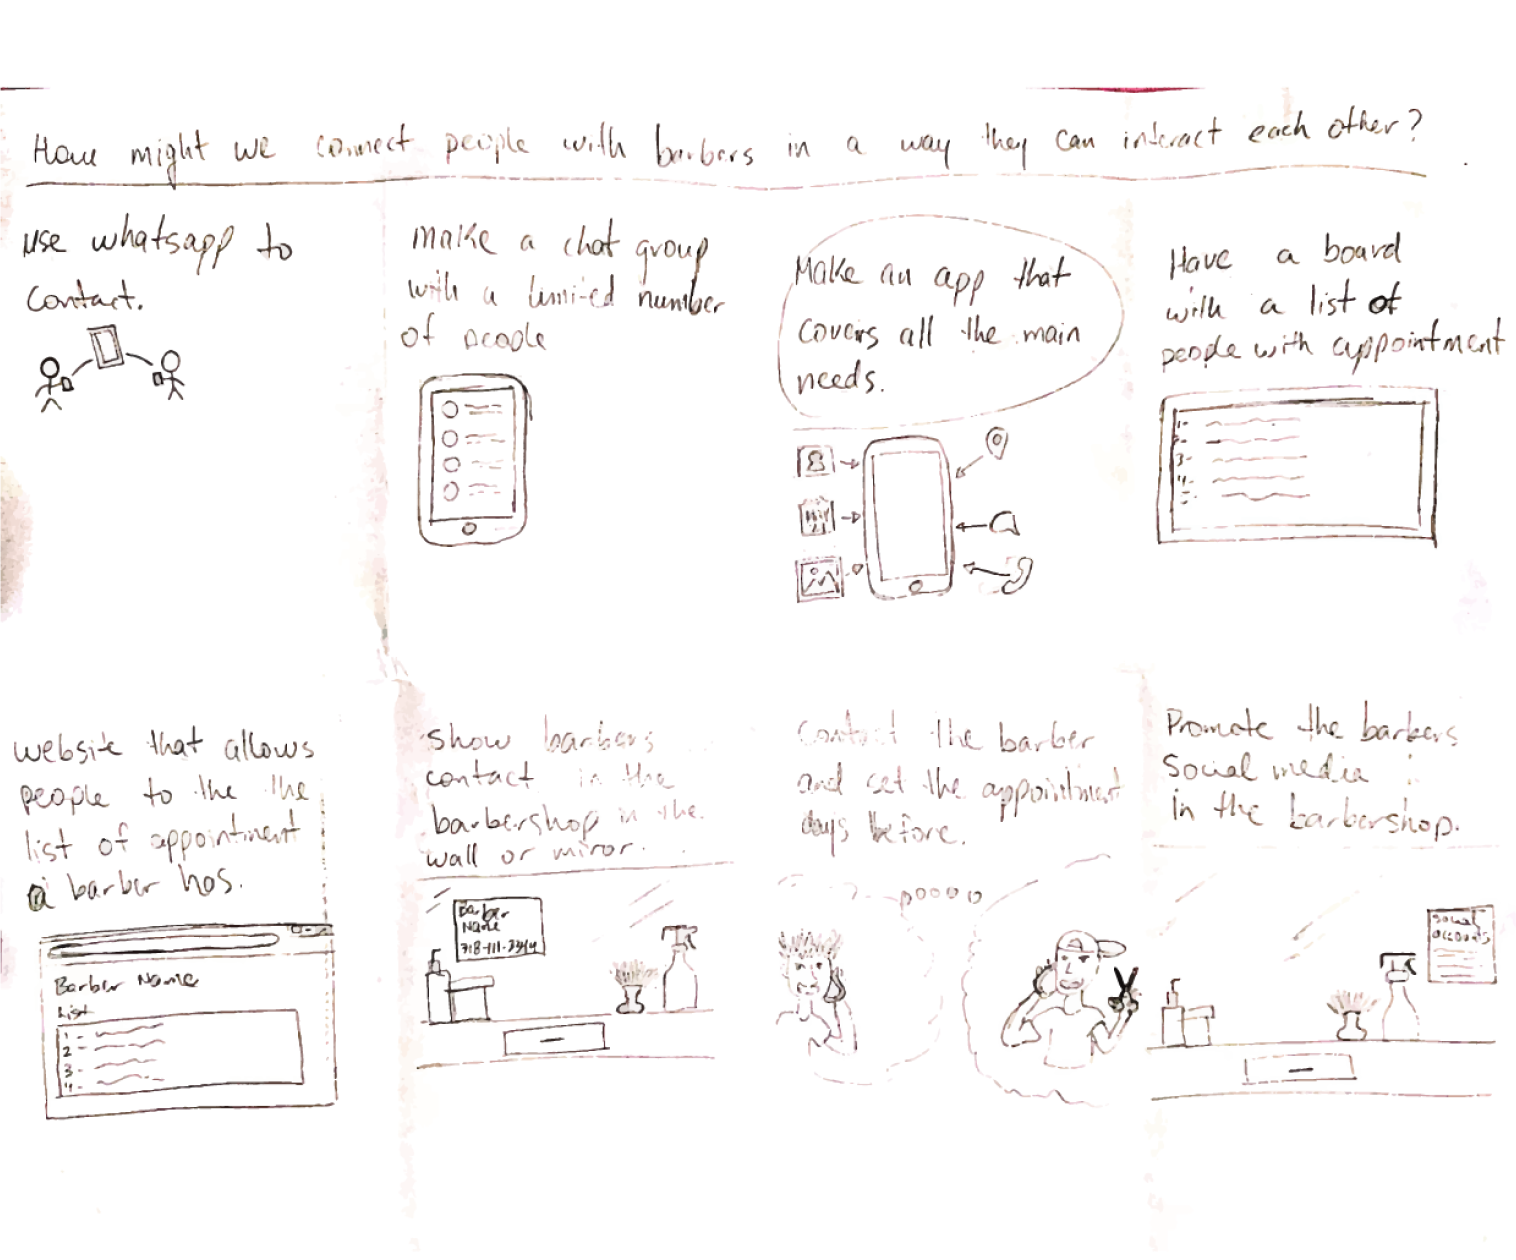 How might we connect people with barbers in a way they can interact each other?
use whatsapp to
contact.
make a chat group
with a limited number
of people
Make an app that
covers all the main
needs.
Have a board
with a list of
people with appointment
1-
2-
3-
4-
5-
website that allows
people to the the
list of appointment
a barber has.
Barber Name
List
1-
2-
3-
4-
show barbers
contact in the
barbershop in the
wall or miror.
Barber
Name
718-111-2344
Contact the barber
and set the appointment
days before.
Promote the barbers
social media
in the barbershop.
social
accounts